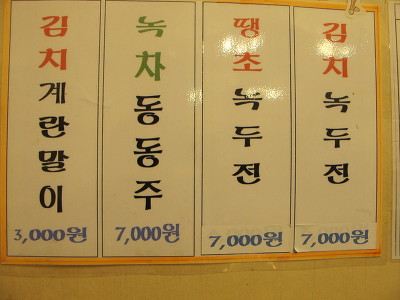 김치계란말이
3,000원
녹차동동주
7,000원
땡초녹두전
7,000원
김치녹두전
7,000원